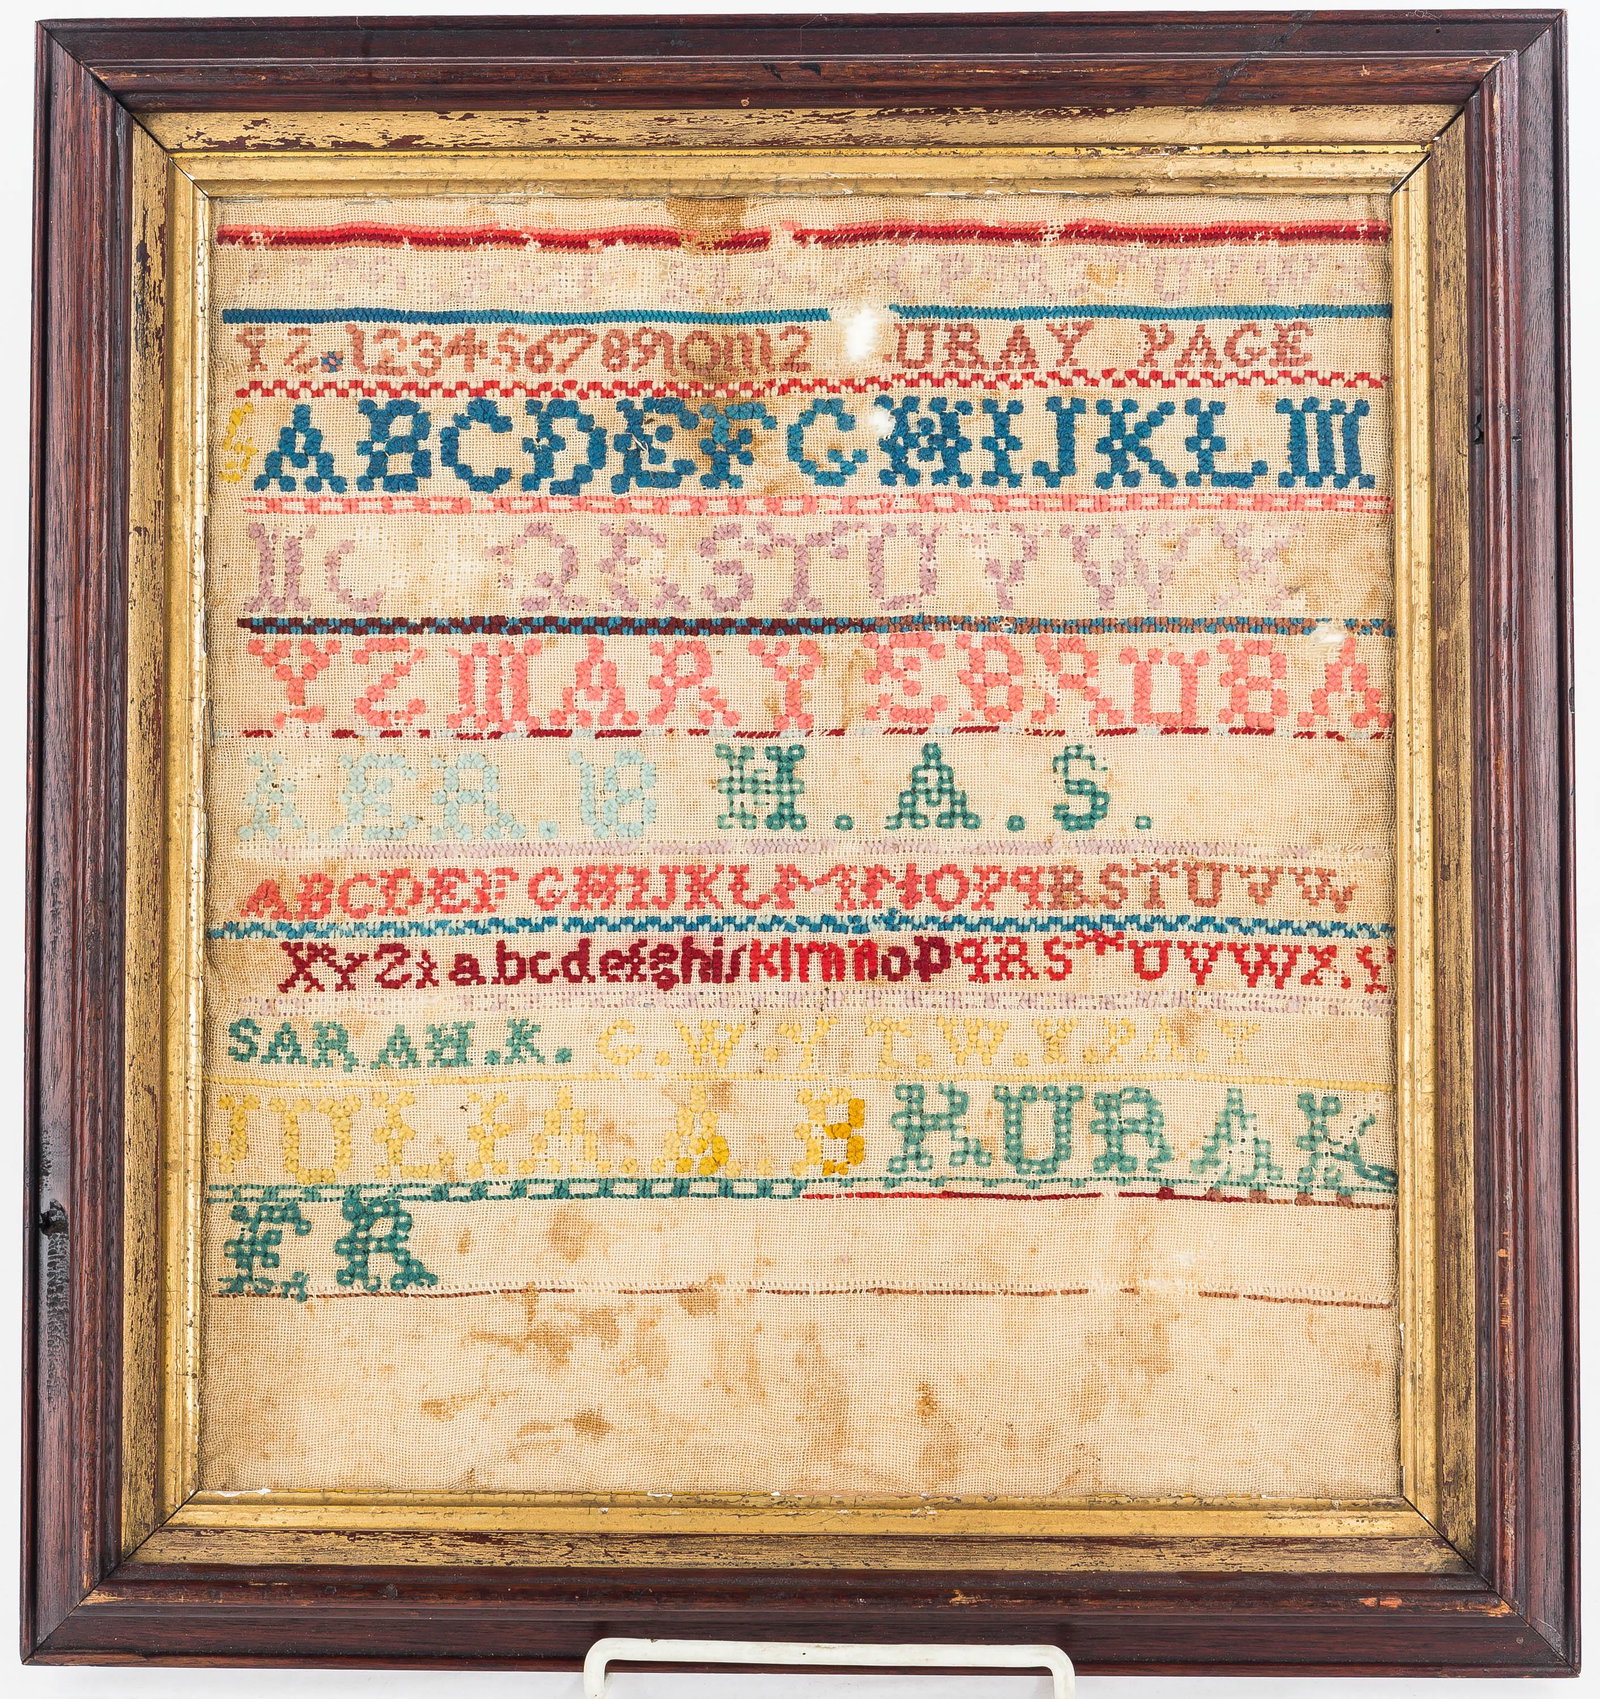 P R S T U V W X
Y Z 1 2 3 4 5 6 7 8 9 10 11 12 URAY PAGE
A B C D E F G H I J K L M
N Q R S T U V W X
Y Z MARY E BRUBA
KER. B H.A.S.
A B C D E F G H I J K L M N O P q R S T U V W
X Y Z a b c d e f g h i j k l m n o p q R S T U V W X Y
SARAH.K. G.W.Y T.W.Y.PA.Y
JULIA.A. B RUBAK
ER